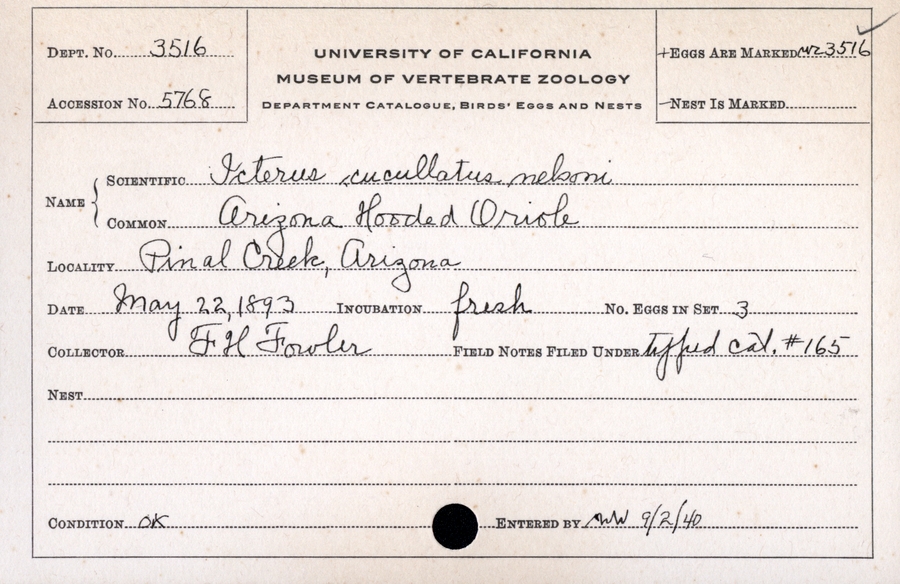 DEPT. NO. 3516
ACCESSION NO. 5768
UNIVERSITY OF CALIFORNIA
MUSEUM OF VERTEBRATE ZOOLOGY
DEPARTMENT CATALOGUE, BIRDS' EGGS AND NESTS
+EGGS ARE MARKED 3516
-NEST IS MARKED
NAME
SCIENTIFIC Icterus cucullatus nelsoni
COMMON Arizona Hooded Oriole
LOCALITY Pinal Creek, Arizona
DATE May 22, 1893 INCUBATION fresh NO. EGGS IN SET 3
COLLECTOR F H Fowler FIELD NOTES FILED UNDER typed cat. #165
NEST
CONDITION OK ENTERED BY 9/2/40